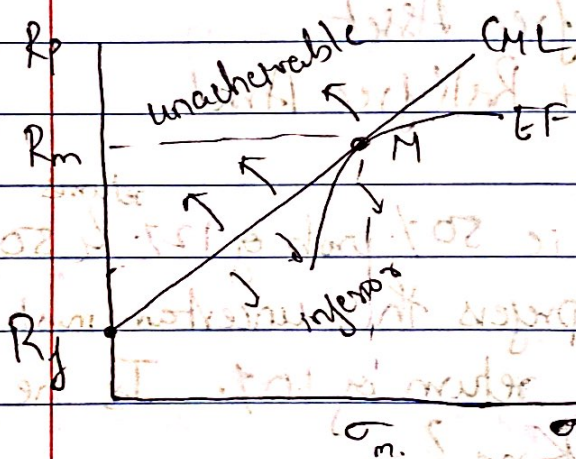 Rp
CML
unacheivable
EF
Rm
M
inferior
Rf
σm.
σ